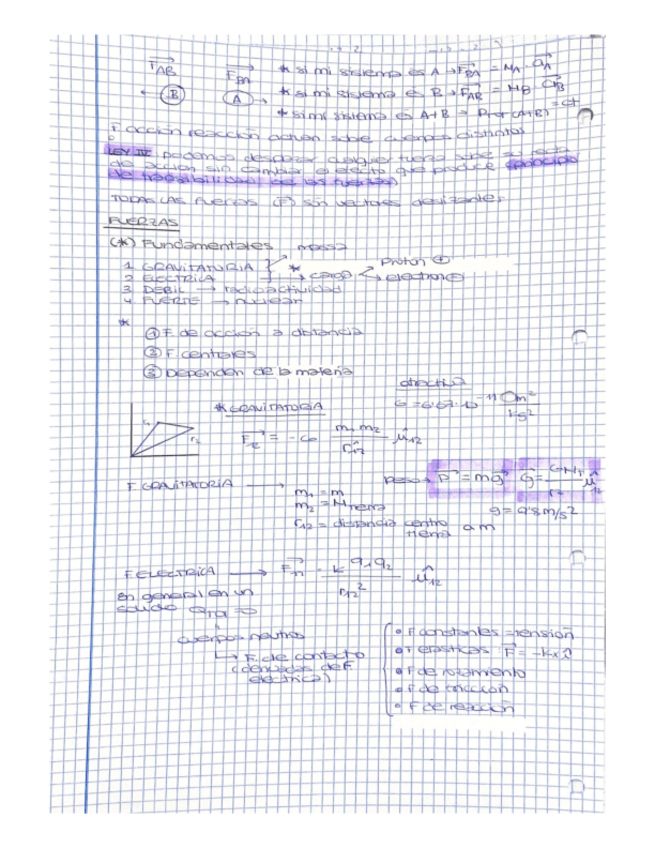 F_AB F_BA * si mi sistema es A → F_BA = M_A · a_A
← B A → * si mi sistema es B → F_AB = M_B · a_B
* si mi sistema es A+B → P_TOT (A+B) = ct
F acción reacción actúan sobre cuerpos distintos
LEY IV podemos desplazar cualquier fuerza sobre su recta
de acción sin cambiar el efecto que produce (principio
de trasibilidad de las fuerzas)
TODAS LAS FUERZAS (F) sin vectores deslizantes
FUERZAS
(*) Fundamentales masa
1 GRAVITATORIA * Protón ⊕
2 ELECTRICA → carga electrón ⊖
3 DEBIL → radioactividad
4 FUERTE → nuclear
*
① F. de acción a distancia
② F. centrales
③ Dependen de la materia
* GRAVITATORIA G = 6'67·10^-11 m²
F_12 = -G m₁ m₂ / r_12² û_12
F GRAVITATORIA → Peso → P = mg
m₁ = m
m₂ = M_Tierra g = 9'8 m/s²
r_12 = distancia centro Tierra a m
F ELECTRICA → F = k q₁ q₂ / r_12² û_12
En general en un
sólido Q = 0
cuerpos neutros
→ F. de contacto
(derivadas de F.
eléctrica)
• F constantes → tensión
• F elásticas F = -kx î
• F de rozamiento
• F de tracción
• F de reacción